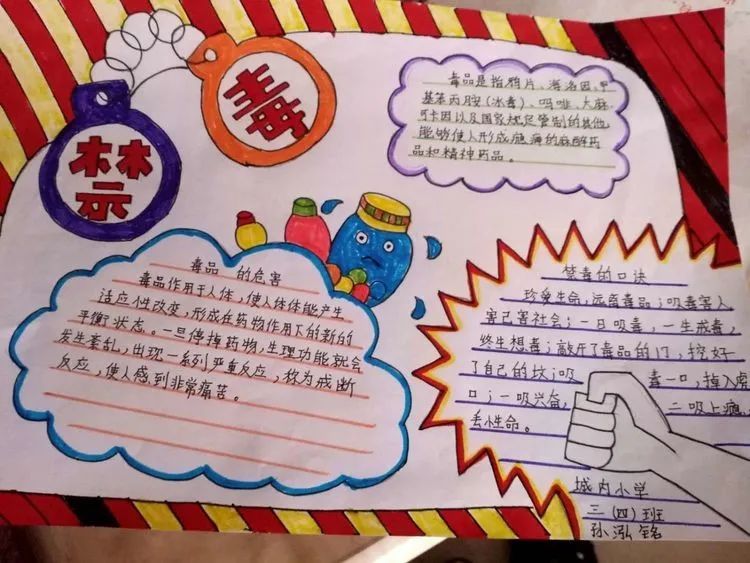 禁毒
毒品是指鸦片、海洛因、甲
基苯丙胺(冰毒)、吗啡、大麻、
可卡因以及国家规定管制的其他
能够使人形成瘾癖的麻醉药
品和精神药品。
毒品 的危害
毒品作用于人体,使人体体能产生
适应性改变,形成在药物作用下的新的
平衡状态。一旦停掉药物,生理功能就会
发生紊乱,出现一系列严重反应,称为戒断
反应,使人感到非常痛苦。
禁毒的口诀
珍爱生命,远离毒品;吸毒害人
害己害社会;一日吸毒,一生戒毒,
终生想毒;敲开了毒品的门,挖好
了自己的坟;吸 毒一口,掉入虎
口;一吸兴奋, 二吸上瘾,
丢性命。
城内小学
三(四)班
孙泓铭